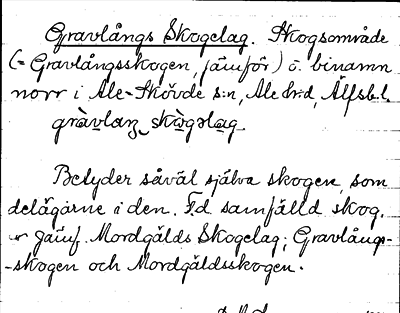 Gravlångs Skogelag. Skogsområde
(= Gravlångsskogen, jämför) o. binamn
norr i Ale-Skövde s:n, Ale hd, Älfsb.l.
gràvlaŋ skògslag
Betyder såväl själva skogen, som
delägarne i den. F.d. samfälld skog.
Jämf. Mordgälds Skogelag; Gravlångs-
-skogen och Mordgäldsskogen.